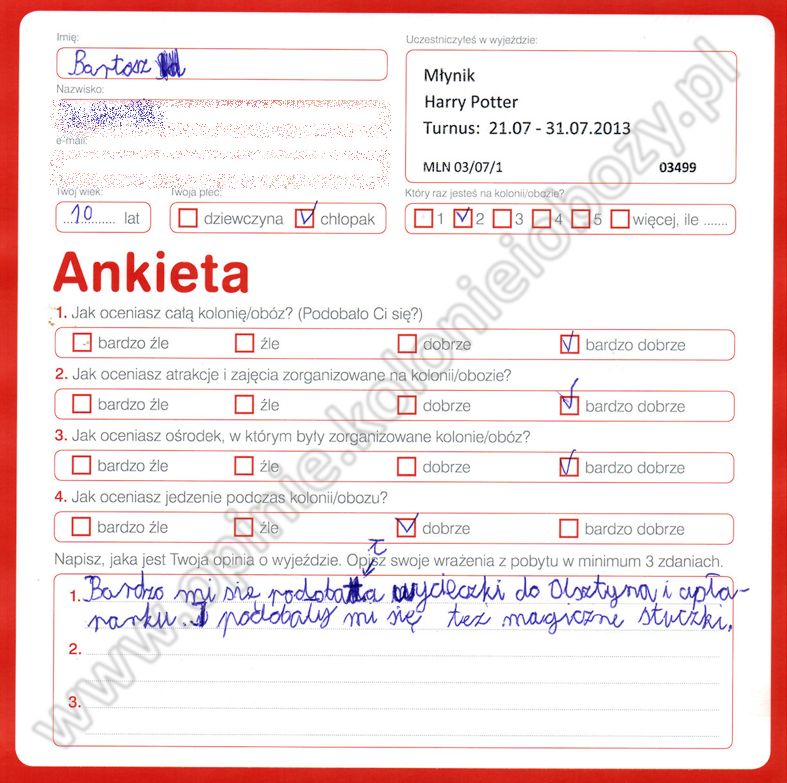 Imię:
Bartosz
Uczestniczyłeś w wyjeździe:
Młynik
Harry Potter
Turnus: 21.07 - 31.07.2013
MLN 03/07/1 03499
Nazwisko:
e-mail:
Twój wiek:
10 lat
Twoja płeć:
dziewczyna chłopak
Który raz jesteś na kolonii/obozie?
1 2 3 4 5 więcej, ile .......
Ankieta
1. Jak oceniasz całą kolonię/obóz? (Podobało Ci się?)
bardzo źle źle dobrze bardzo dobrze
2. Jak oceniasz atrakcje i zajęcia zorganizowane na kolonii/obozie?
bardzo źle źle dobrze bardzo dobrze
3. Jak oceniasz ośrodek, w którym były zorganizowane kolonie/obóz?
bardzo źle źle dobrze bardzo dobrze
4. Jak oceniasz jedzenie podczas kolonii/obozu?
bardzo źle źle dobrze bardzo dobrze
Napisz, jaka jest Twoja opinia o wyjeździe. Opisz swoje wrażenia z pobytu w minimum 3 zdaniach.
1. Bardzo mi się wycieczki do Olsztyna i
podobały mi się też magiczne stuczki.
2.
3.
www.opinie.kolonieiobozy.pl